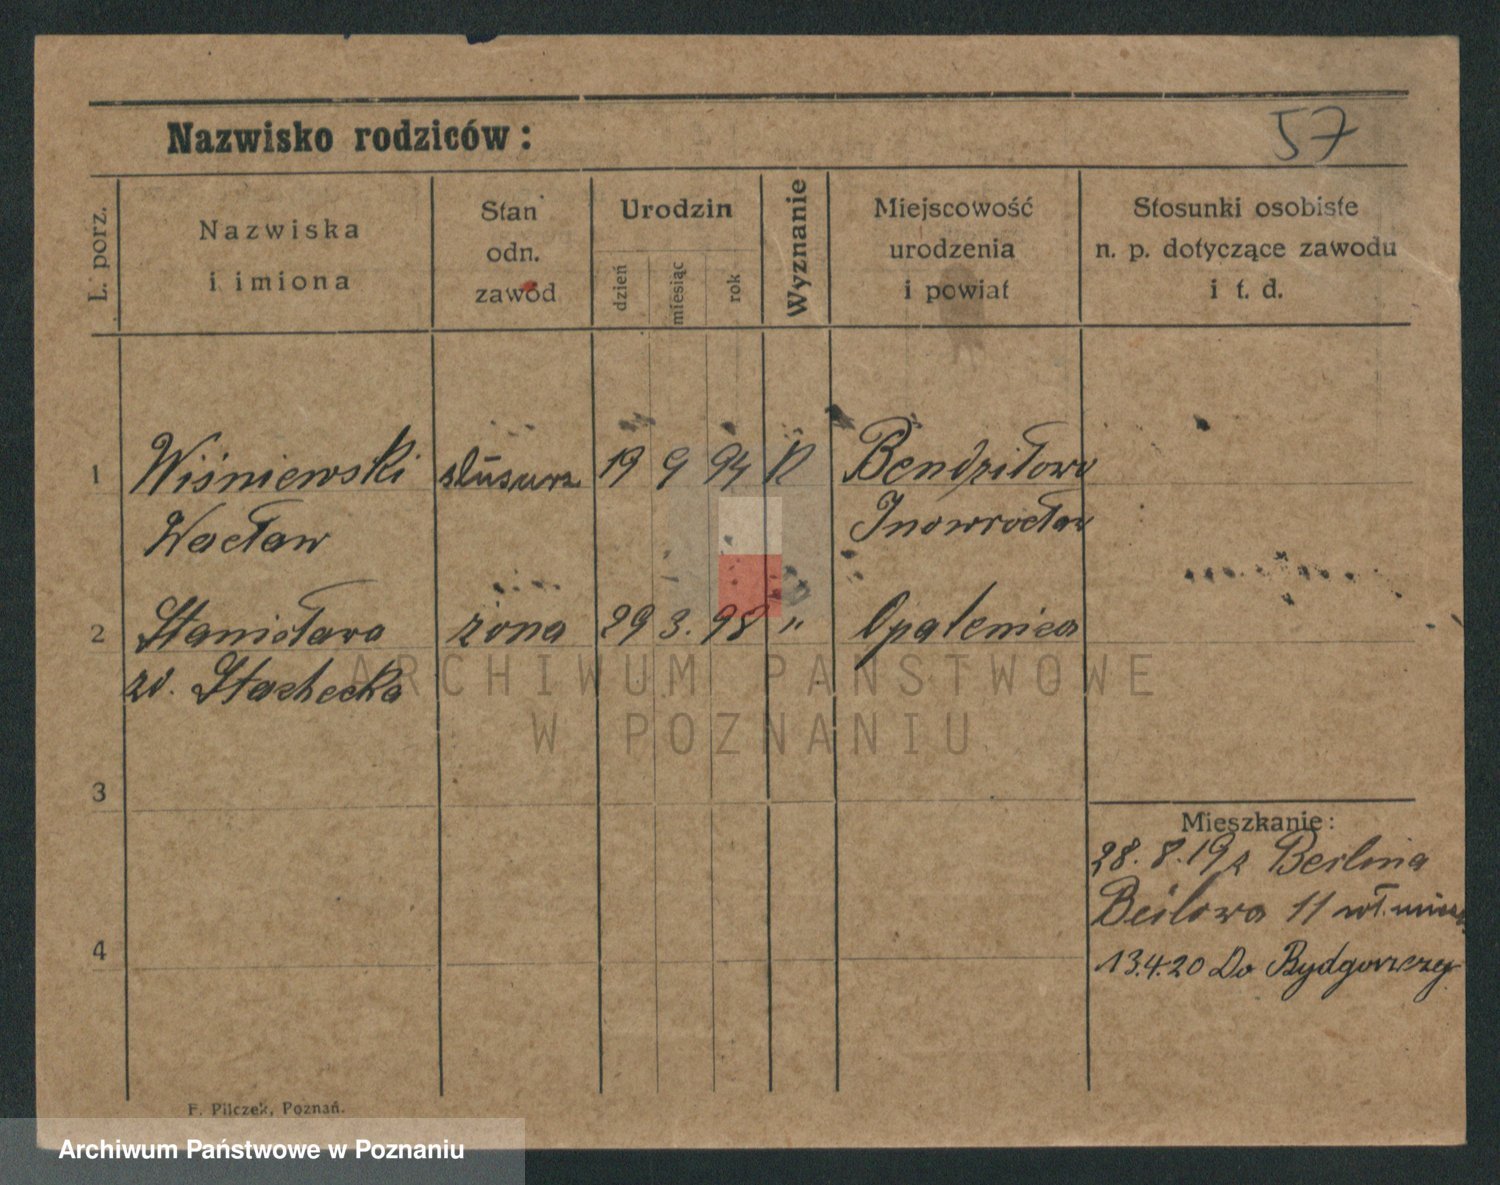 57
Nazwisko rodziców:
L. porz.
Nazwiska
i imiona
Stan
odn.
zawód
Urodzin
dzień
miesiąc
rok
Wyznanie
Miejscowość
urodzenia
i powiat
Stosunki osobiste
n. p. dotyczące zawodu
i t. d.
1 Wiśniewski ślusarz 19 9 94 K Bendzitowo
Wacław Inowrocław
2 Stanisława żona 29 3. 98 " Opalenica
zd. Stachecka
ARCHIWUM PAŃSTWOWE
W POZNANIU
3
Mieszkanie:
28. 8. 19 z Berlina
11 wł.
4
13.4.20 Do Bydgoszczy
F. Pilczek, Poznań.
Archiwum Państwowe w Poznaniu